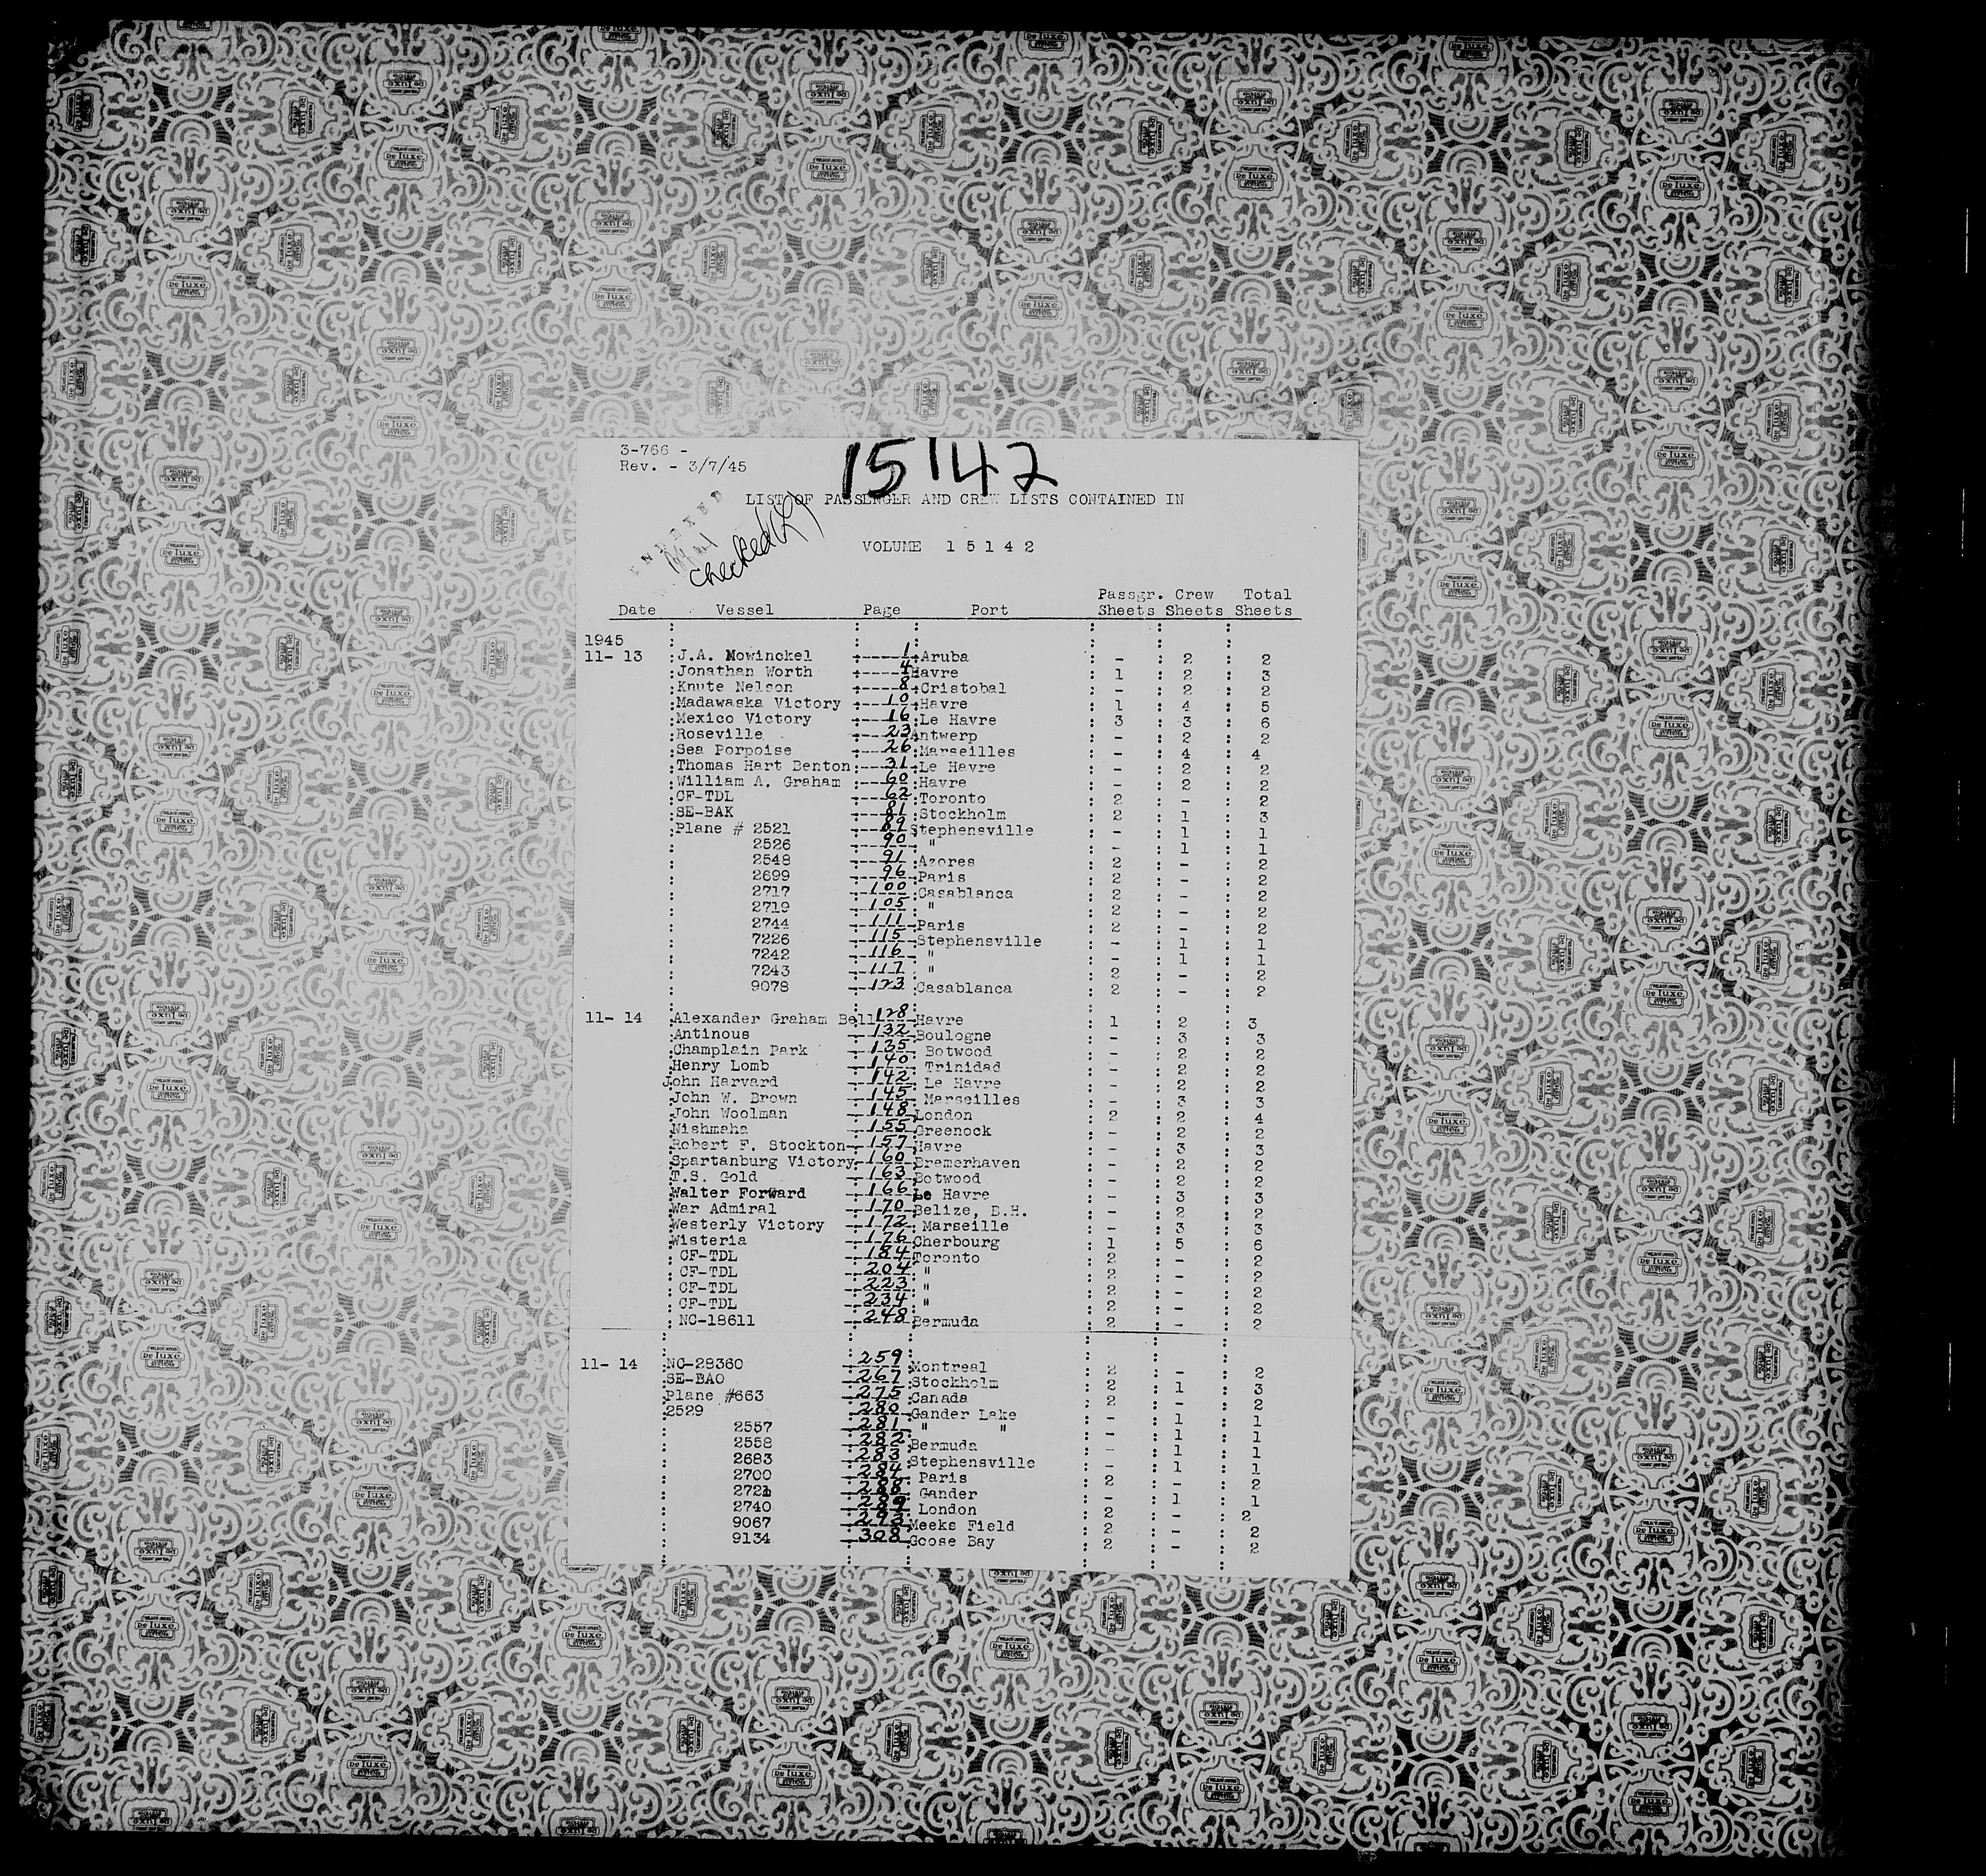 3-766 -
Rev. - 3/7/45
15142
LIST OF PASSENGER AND CREW LISTS CONTAINED IN
INDEXED
checked
VOLUME 15142
Date Vessel Page Port Passgr. Sheets Crew Sheets Total Sheets
1945
11- 13 J.A. Mowinckel 1 Aruba - 2 2
Jonathan Worth 4 Havre 1 2 3
Knute Nelson 8 Cristobal - 2 2
Madawaska Victory 10 Havre 1 4 5
Mexico Victory 16 Le Havre 3 3 6
Roseville 23 Antwerp - 2 2
Sea Porpoise 26 Marseilles - 4 4
Thomas Hart Benton 31 Le Havre - 2 2
William A. Graham 60 Havre - 2 2
CF-TDL 62 Toronto 2 - 2
SE-BAK 81 Stockholm 2 1 3
Plane # 2521 89 Stephensville - 1 1
2526 90 " - 1 1
2548 91 Azores 2 - 2
2699 96 Paris 2 - 2
2717 100 Casablanca 2 - 2
2719 105 " 2 - 2
2744 111 Paris 2 - 2
7226 115 Stephensville - 1 1
7242 116 " - 1 1
7243 117 " 2 - 2
9078 123 Casablanca 2 - 2
11- 14 Alexander Graham Bell 128 Havre 1 2 3
Antinous 132 Boulogne - 3 3
Champlain Park 135 Botwood - 2 2
Henry Lomb 140 Trinidad - 2 2
John Harvard 142 Le Havre - 2 2
John W. Brown 145 Marseilles - 3 3
John Woolman 148 London 2 2 4
Nishmaha 155 Greenock - 2 2
Robert F. Stockton 157 Havre - 3 3
Spartanburg Victory 160 Bremerhaven - 2 2
T.S. Gold 163 Botwood - 2 2
Walter Forward 166 Le Havre - 3 3
War Admiral 170 Belize, B.H. - 2 2
Westerly Victory 172 Marseille - 3 3
Wisteria 176 Cherbourg 1 5 6
CF-TDL 184 Toronto 2 - 2
CF-TDL 204 " 2 - 2
CF-TDL 223 " 2 - 2
CF-TDL 234 " 2 - 2
NC-18611 248 Bermuda 2 - 2
11- 14 NC-28360 259 Montreal 2 - 2
SE-BAO 267 Stockholm 2 1 3
Plane #663 275 Canada 2 - 2
2529 280 Gander Lake - 1 1
2557 281 " " - 1 1
2558 282 Bermuda - 1 1
2683 283 Stephensville - 1 1
2700 284 Paris 2 - 2
2721 288 Gander - 1 1
2740 289 London 2 - 2
9067 Meeks Field 2 - 2
9134 308 Goose Bay 2 - 2